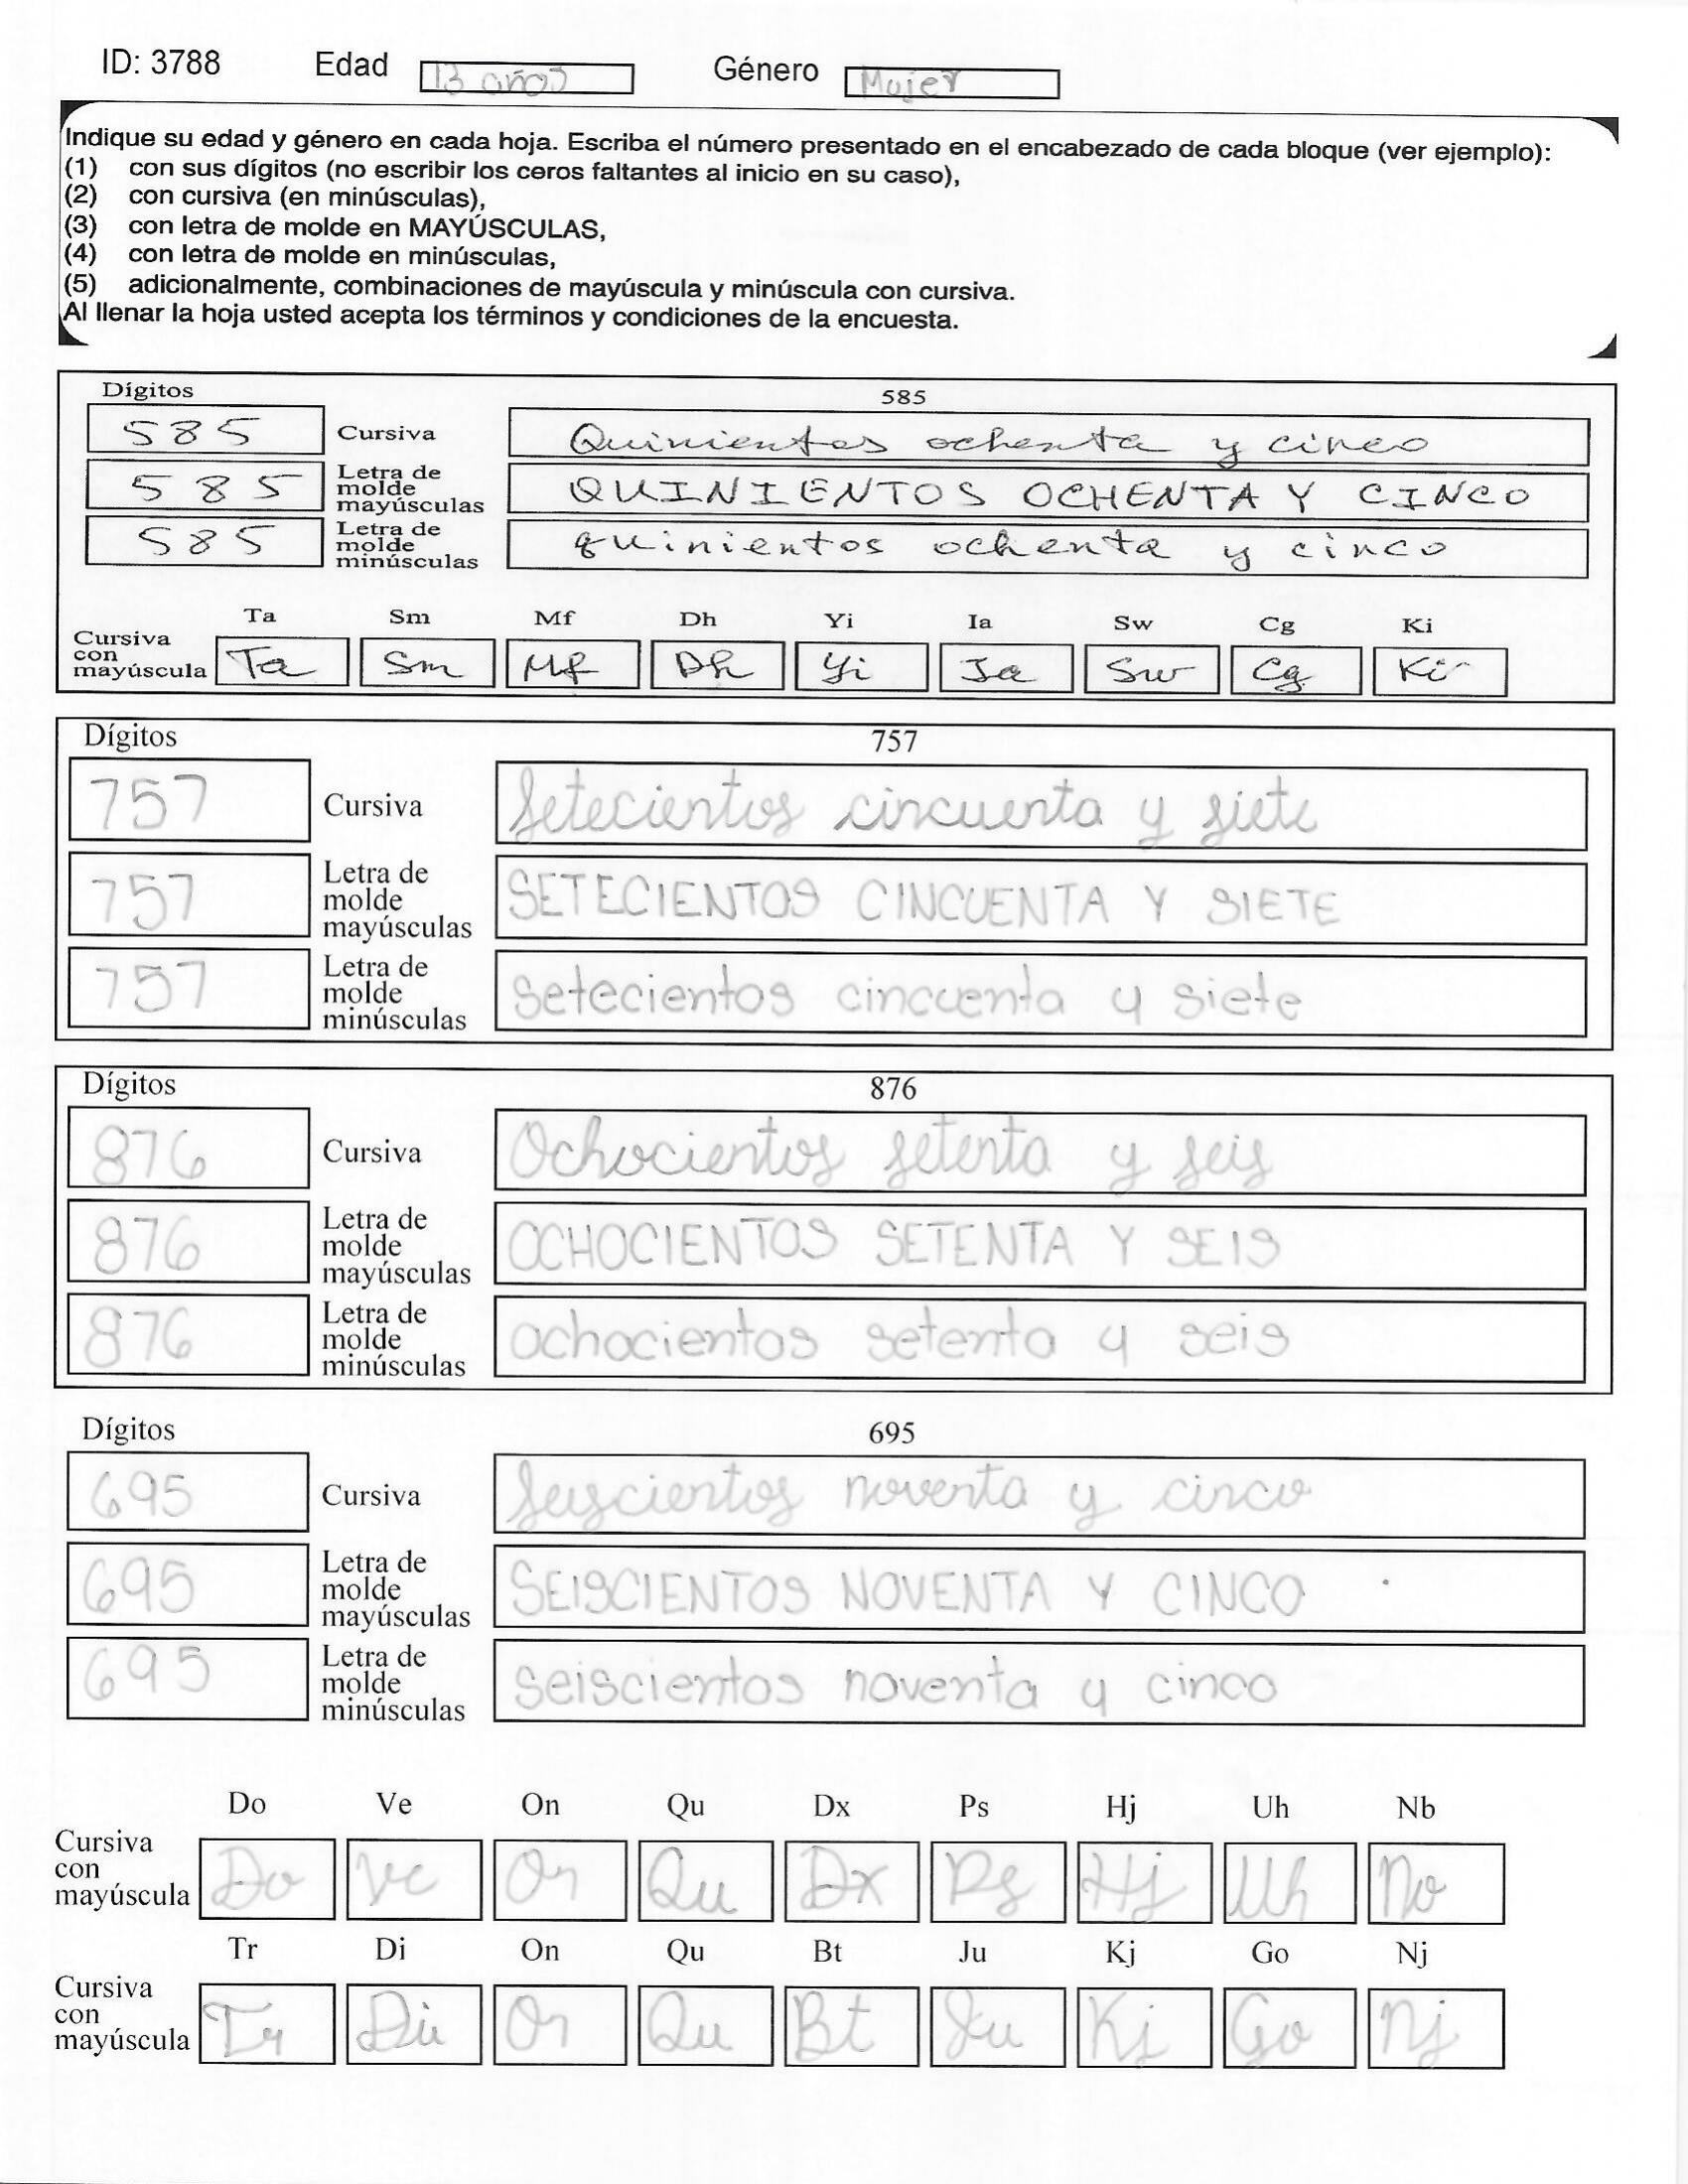 ID: 3788 Edad 13 años Género Mujer
Indique su edad y género en cada hoja. Escriba el número presentado en el encabezado de cada bloque (ver ejemplo):
(1) con sus dígitos (no escribir los ceros faltantes al inicio en su caso),
(2) con cursiva (en minúsculas),
(3) con letra de molde en MAYÚSCULAS,
(4) con letra de molde en minúsculas,
(5) adicionalmente, combinaciones de mayúscula y minúscula con cursiva.
Al llenar la hoja usted acepta los términos y condiciones de la encuesta.
Dígitos 585
585 Cursiva Quinientos ochenta y cinco
585 Letra de molde mayúsculas QUINIENTOS OCHENTA Y CINCO
585 Letra de molde minúsculas quinientos ochenta y cinco
Ta Sm Mf Dh Yi Ia Sw Cg Ki
Cursiva con mayúscula Ta Sm Mf Dh Yi Ia Sw Cg Ki
Dígitos 757
757 Cursiva Setecientos cincuenta y siete
757 Letra de molde mayúsculas SETECIENTOS CINCUENTA Y SIETE
757 Letra de molde minúsculas setecientos cincuenta y siete
Dígitos 876
876 Cursiva Ochocientos setenta y seis
876 Letra de molde mayúsculas OCHOCIENTOS SETENTA Y SEIS
876 Letra de molde minúsculas ochocientos setenta y seis
Dígitos 695
695 Cursiva Seiscientos noventa y cinco
695 Letra de molde mayúsculas SEISCIENTOS NOVENTA Y CINCO
695 Letra de molde minúsculas seiscientos noventa y cinco
Do Ve On Qu Dx Ps Hj Uh Nb
Cursiva con mayúscula Do Ve On Qu Dx Ps Hj Uh Nb
Tr Di On Qu Bt Ju Kj Go Nj
Cursiva con mayúscula Tr Di On Qu Bt Ju Kj Go Nj